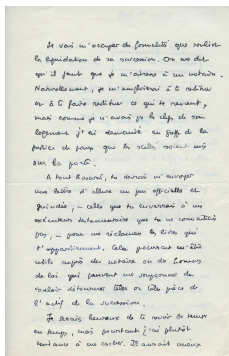 Je vais m'occuper des formalités que soulève
la liquidation de sa succession. On me dit
qu'il faut que je m'adresse à un notaire.
Naturellement, je m'emploierai à te restituer
ou à te faire restituer ce qui te revient,
mais comme je n'avais pas les clefs de son
logement j'ai demandé au greffe de la
justice de paix que les scellés soient mis
sur la porte.
A tout hasard, tu devrais m'envoyer
une lettre d'allure un peu officielle et
guindée, – celle que tu enverrais à un
exécuteur testamentaire que tu ne connaîtrais
pas, – pour me réclamer les livres qui
t'appartiennent. Cela pourrait m'être
utile auprès des notaires ou des hommes
de loi qui peuvent me soupçonner de
vouloir détourner telle ou telle pièce de
l'actif de la succession.
Je serais heureux de te revoir de temps
en temps, mais pourtant j'ai plutôt
tendance à me cacher. Il aurait mieux